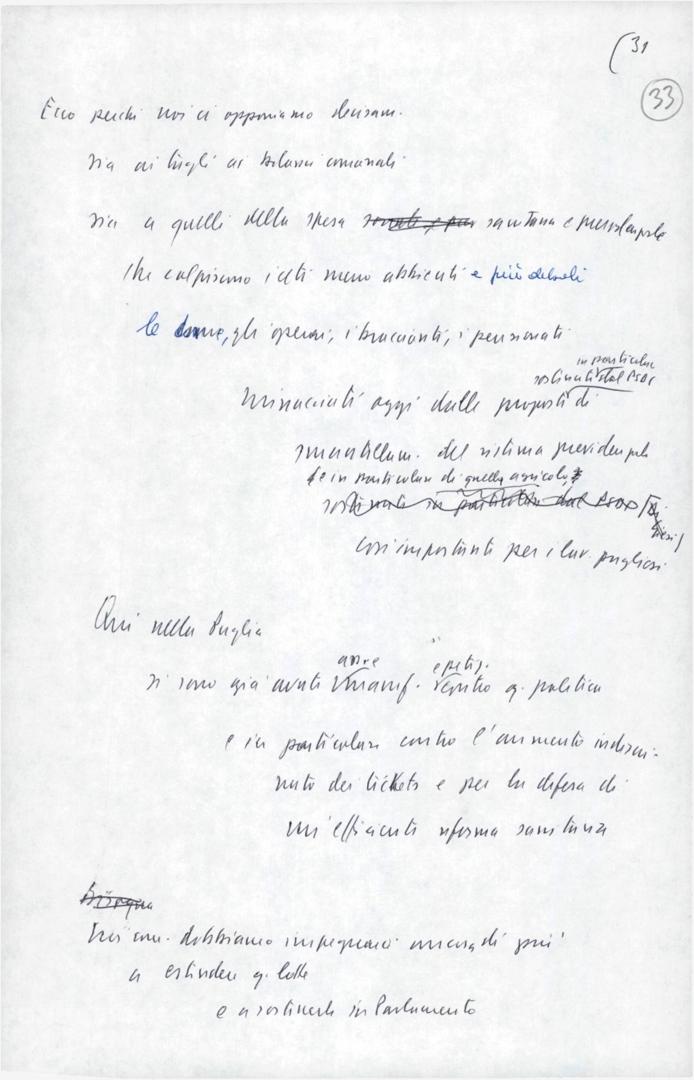 (31
33
Ecco perché noi ci opponiamo decisam.
sia ai tagli ai bilanci comunali
sia a quelli della spesa sanitaria e previdenziale
che colpiscono i ceti meno abbienti e più deboli
le donne, gli operai, i braccianti, i pensionati
in particolare
sostenute dal PSDI
minacciati oggi dalle proposte di
smantellam. del sistema previdenziale
(e in particolare di quello agricolo)
sostenute in particolare dal PSDI
così importanti per i lav. pugliesi
Qui nella Puglia
si sono già avute manif. e petiz. contro q. politica
e in particolare contro l'aumento indiscriminato
dei tickets e per la difesa di
un'efficiente riforma sanitaria
Bisogna
Noi com. dobbiamo impegnarci ancora di più
a estendere q. lotte
e a sostenerle in Parlamento